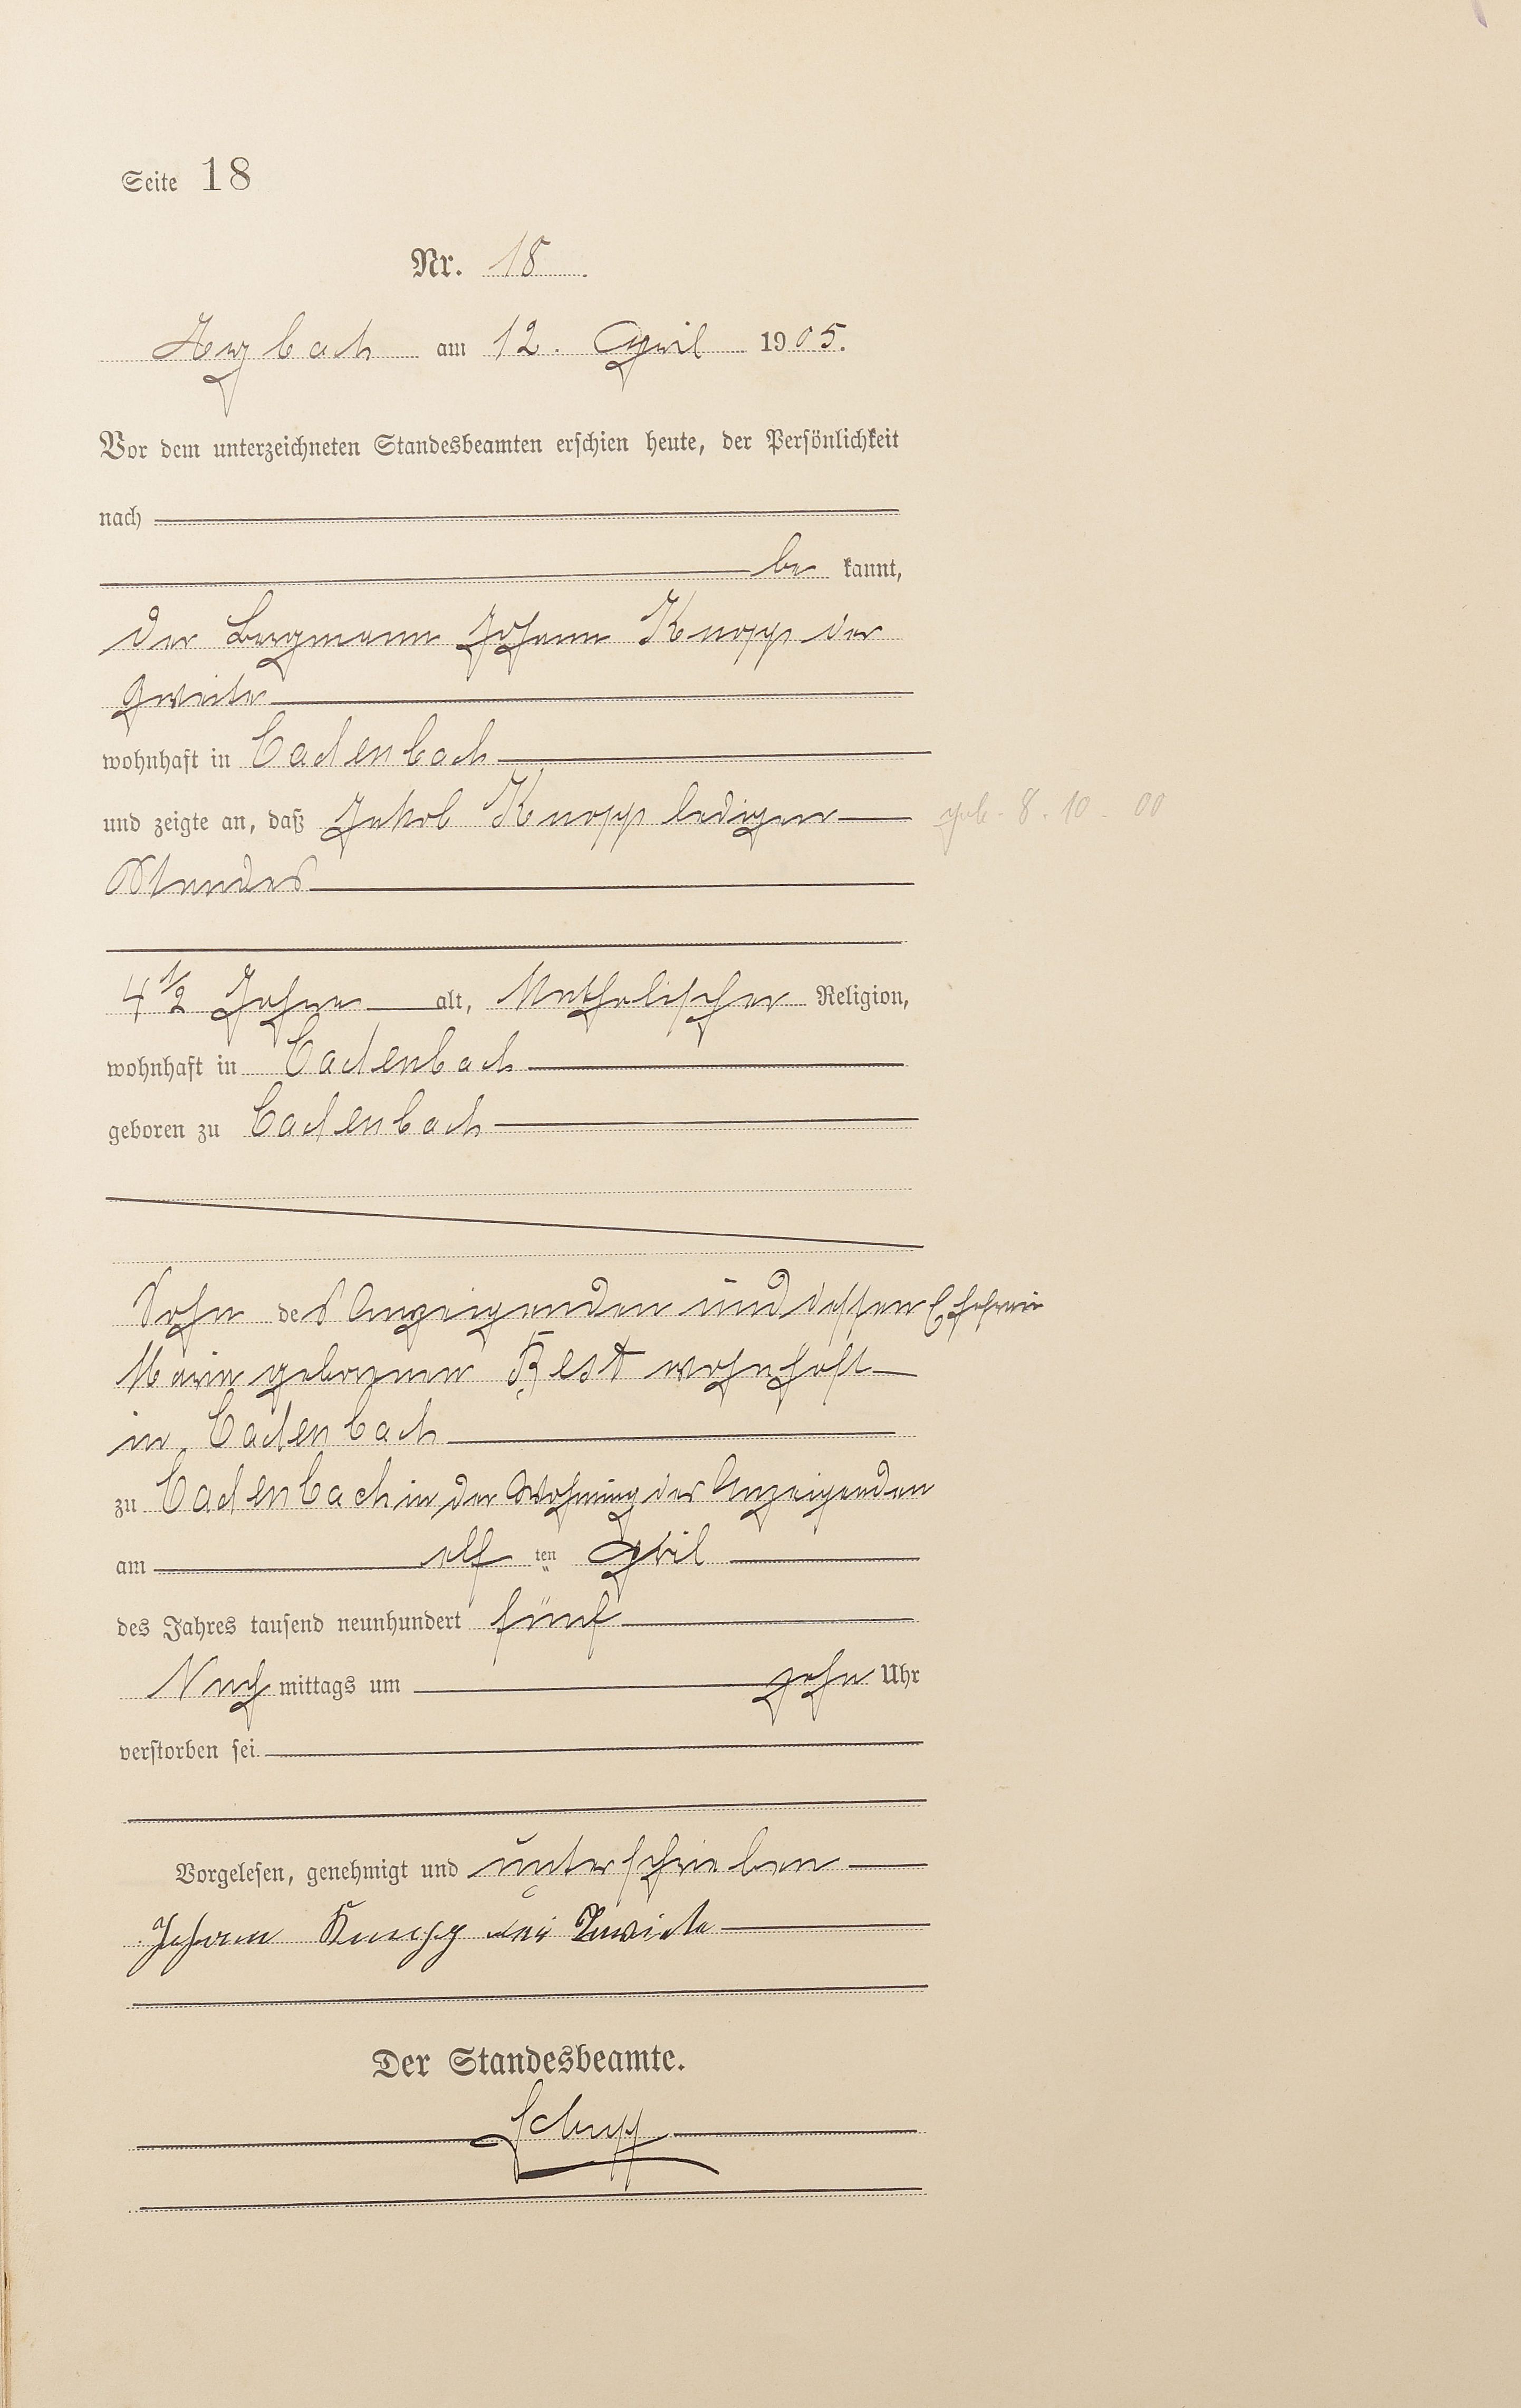 Seite 18
Nr. 18
Arzbach am 12. April 1905.
Vor dem unterzeichneten Standesbeamten erschien heute, der Persönlichkeit
nach
be kannt,
der Bergmann Johann Knopp der
Zweite
wohnhaft in Cadenbach
und zeigte an, daß Jakob Knopp lediger
geb. 8. 10. 00
Standes
4 1/2 Jahre alt, Katholischer Religion,
wohnhaft in Cadenbach
geboren zu Cadenbach
Sohn des Anzeigenden und dessen Ehefrau
Maria geborenen Best wohnhaft
in Cadenbach
zu Cadenbach in der Wohnung des Anzeigenden
am elf ten April
des Jahres tausend neunhundert fünf
Nach mittags um zehn Uhr
verstorben sei.
Vorgelesen, genehmigt und unterschrieben
Johann Knopp der Zweite
Der Standesbeamte.
Schupp